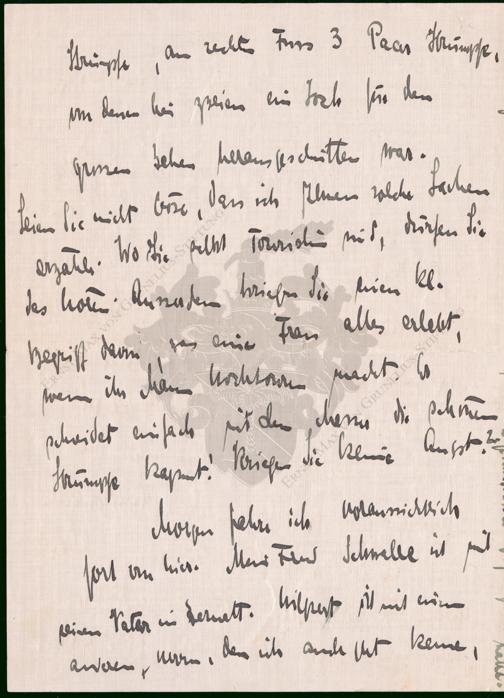 Strümpfe, am rechten Fuss 3 Paar Strümpfe,
von denen bei zweien ein Loch für den
grossen Zehen herausgeschnitten war.
Seien Sie nicht böse, dass ich Ihnen solche Sachen
erzähle. Wo Sie selbst Touristin sind, dürfen Sie
das hören. Ausserdem kriegen Sie einen kl.
Begriff davon, was eine Frau alles erlebt,
wenn ihr Mann Hochtouren macht. Er
schneidet einfach mit dem Messer die schönen
Strümpfe kaput! Kriegen Sie keine Angst.
Morgen fahre ich voraussichtlich
fort von hier. Mein Freund ist mit
seinem Vater in Zermatt. Hilpert ist mit einem
anderen, Herrn, den ich auch gut kenne,
ERNST MAX VON GRUNELIUS-STIFTUNG
ERNST MAX VON GRUNELIUS-STIFTUNG